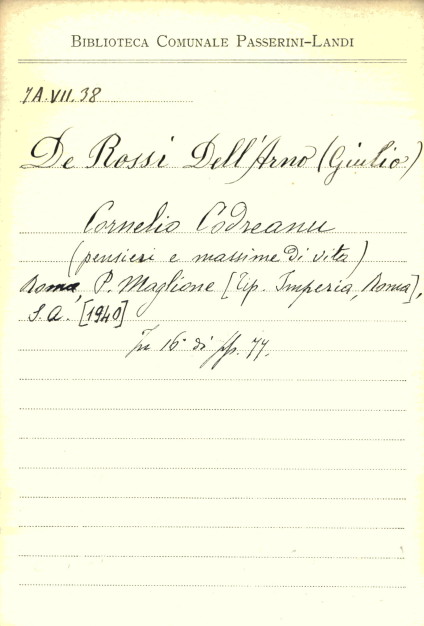 BIBLIOTECA COMUNALE PASSERINI-LANDI
7A.VII.38
De Rossi Dell'Arno (Giulio)
Cornelio Codreanu
(pensieri e massime di vita)
Roma, P. Maglione [Tip. Imperia, Roma],
S.A. [1940]
In 16° di pp. 77.